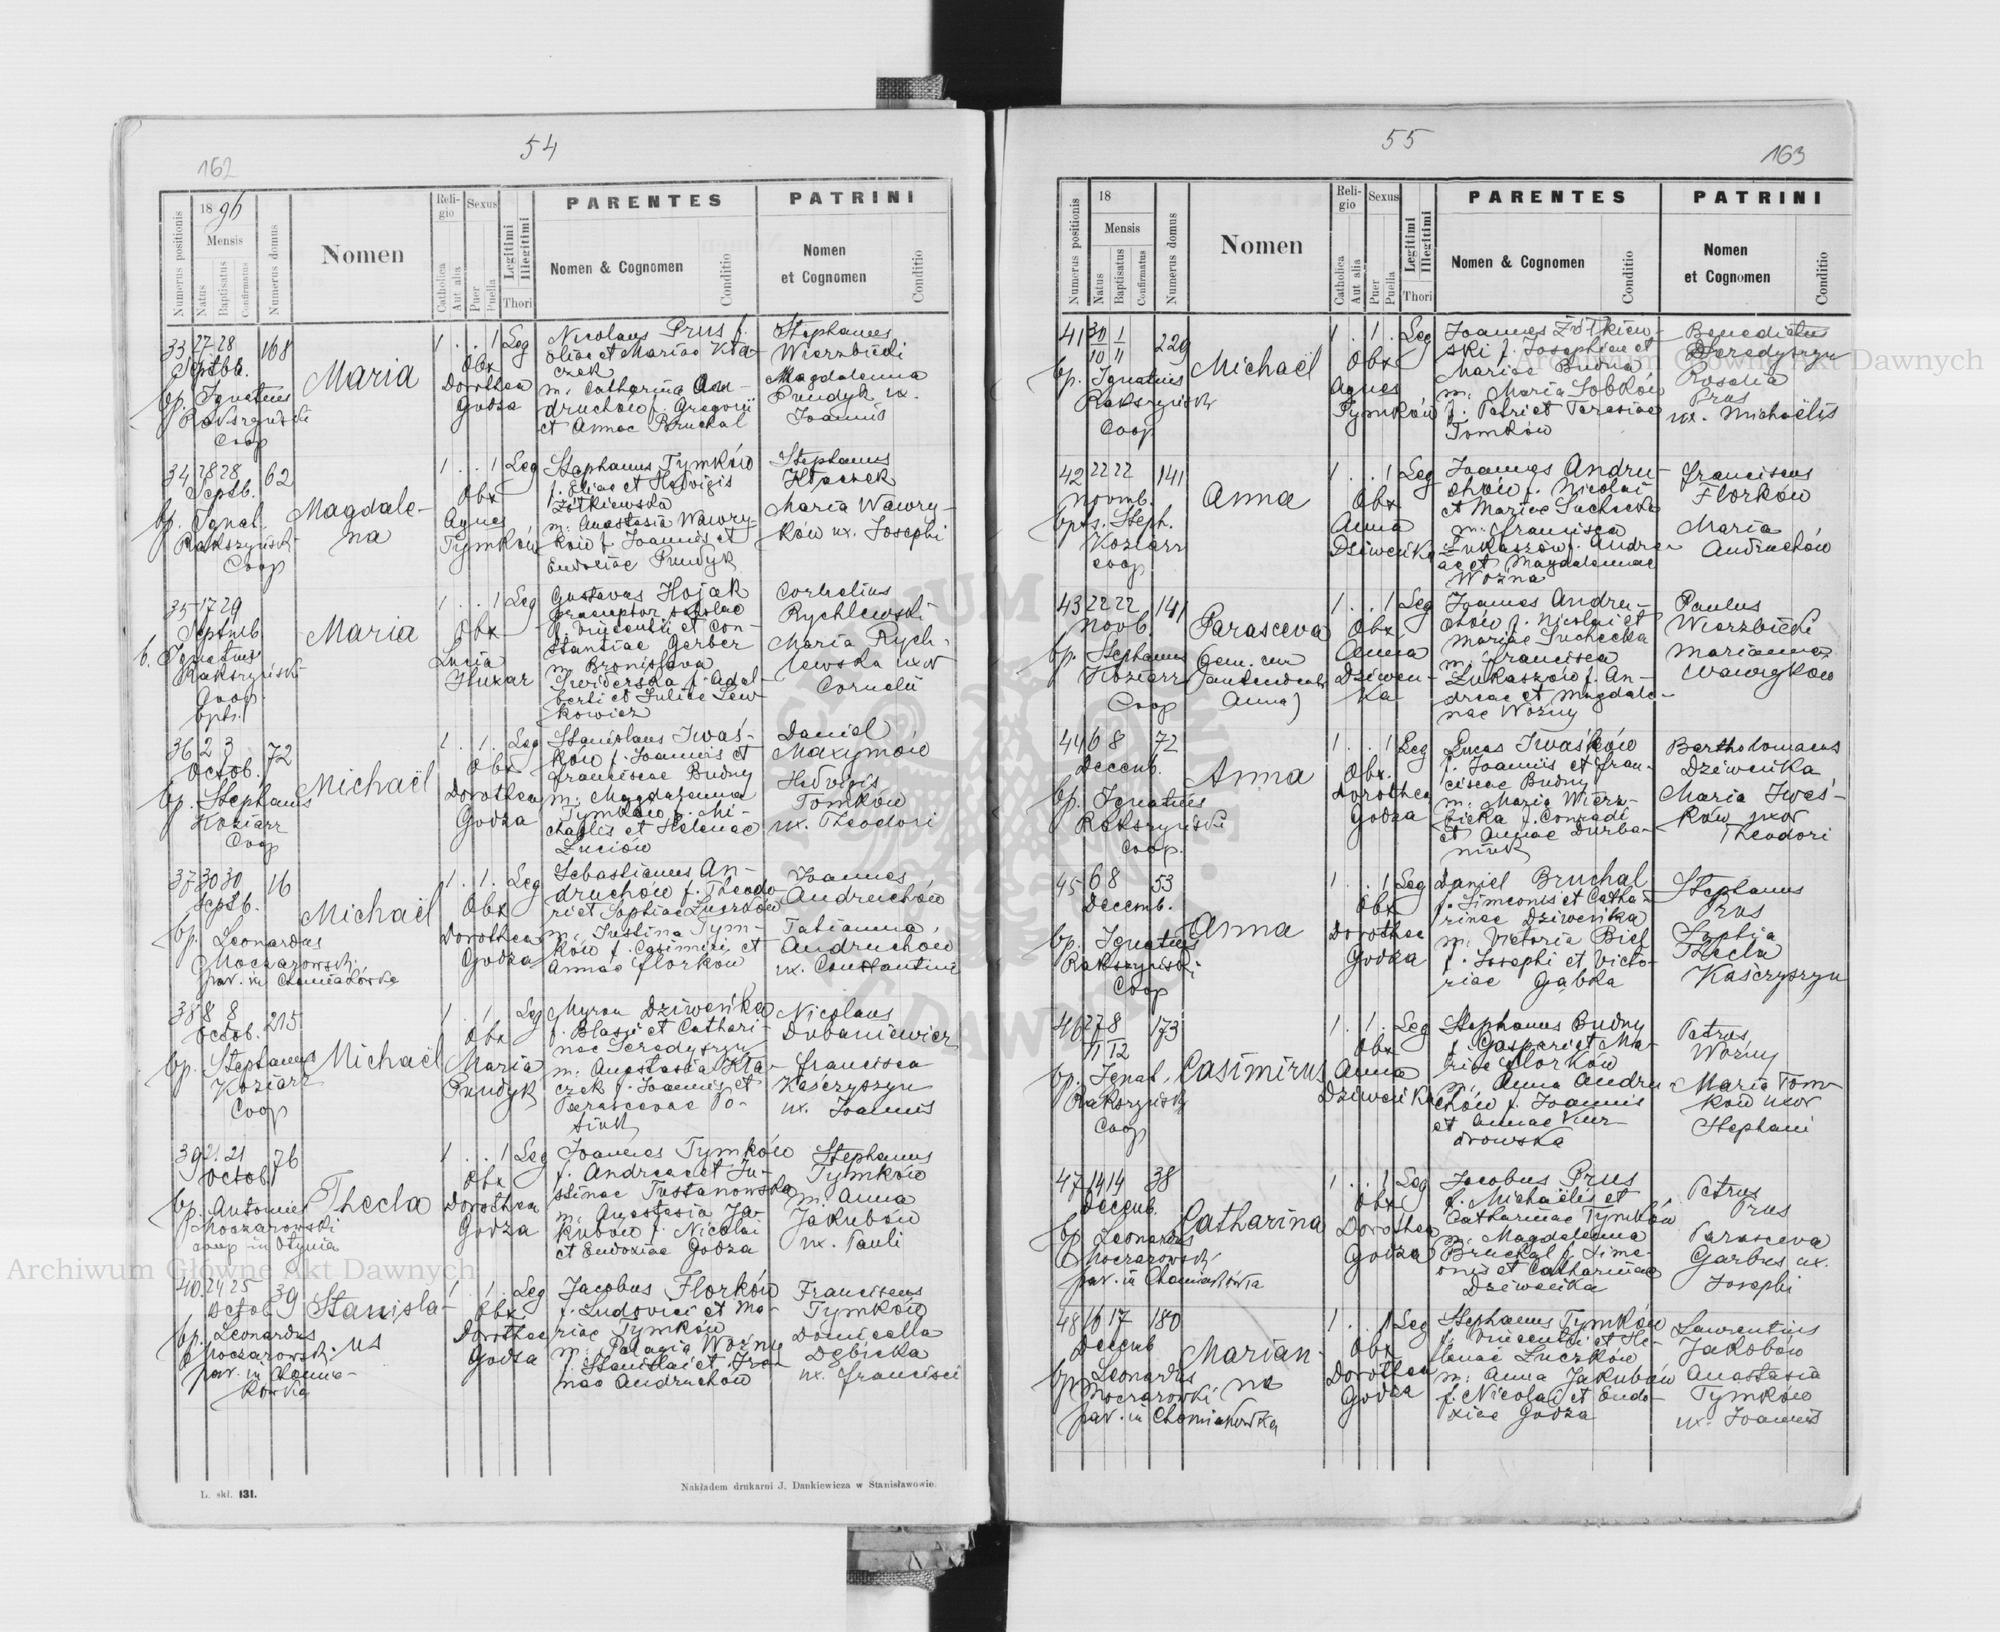 54
162
Numerus positionis
1896
Mensis
Natus
Baptisatus
Confirmatus
Numerus domus
Nomen
Religio
Catholica
Aut alia
Sexus
Puer
Puella
Legitimi
Illegitimi
Thori
PARENTES
Nomen & Cognomen
Conditio
PATRINI
Nomen
et Cognomen
Conditio
33 27 28 168
Septbb.
bp. Ignatius
Rakszyński
Coop
Maria
1 . . 1 Leg
Obx
Dorothea
Godza
Nicolaus Prus f.
Eliae et Mariae Kła-
czek
m. Catharina And-
druchów f. Gregorii
et Annae Bruchal
Stephanus
Wierzbicki
Magdalenna
Pundyk ux.
Joannis
34 28 28 62
Septb.
bp. Ignat.
Rakszyński
Coop
Magdale-
na
1 . . 1 Leg
Obx
Agnes
Tymków
Stephanus Tymków
f. Eliae et Hedvigis
Żółkiewska
m. Anastasia Wawry-
ków f. Joannis et
Eudociae Pundyk
Stephanus
Kłaczek
Maria Wawry-
ków ux. Josephi
35 17 29
Septmb
b. Ignatius
Rakszyński
Coop
bpts.
Maria
1 . . 1 Leg
Obx
Lucia
Huzar
Gustavus Hojak
praeceptor scholae
f. Vincentii et Con-
stantiae Gerber
m. Bronislava
Świderska f. Adal-
berti et Juliae Lew-
kowicz
Cornelius
Rychlewski
Maria Rych-
lewska uxor
Cornelii
36 2 3 72
Octob.
bp. Stephanus
Koziarz
Coop
Michaël
1 . 1 . Leg
Obx
Dorothea
Godza
Stanislaus Iwaś-
ków f. Joannis et
Franciscae Budny
m. Magdalenna
Tymków f. Mi-
chaëlis et Helenae
Luciów
Daniel
Maxymów
Hedvigis
Tomków
ux. Theodori
37 30 30 16
Septb.
bp. Leonardus
Moczarowski
par. in Chomiakówka
Michaël
1 . 1 . Leg
Obx
Dorothea
Godza
Sebastianus An-
druchów f. Theodo-
ri et Sophiae Luczków
m. Justina Tym-
ków f. Casimiri et
Annae Florków
Joannes
Andruchów
Tatianna
Andruchów
ux. Constantini
38 8 8 215
Octob.
bp. Stephanus
Koziarz
Coop
Michaël
1 . 1 . Leg
Obx
Maria
Pundyk
Myron Dziweńka
f. Blasii et Cathari-
nae Seredyszyn
m. Anastasia Kła-
czek f. Joannis et
Parascevae Po-
Nicolaus
Dubaniewicz
Francisca
Kaszczyszyn
ux. Joannis
39 21 21 76
Octob.
bp. Antonius
Moczarowski
coop in Otynia
Thecla
1 . . 1 Leg
Obx
Dorothea
Godza
Joannes Tymków
f. Andreae et Ju-
stinae Tustanowska
m. Anastasia Ja-
kubów f. Nicolai
et Eudoxiae Godza
Stephanus
Tymków
m. Anna
Jakubów
ux. Pauli
40 24 25 39
Octob
bp. Leonardus
Moczarowski
par. in Chomia-
kówka
Stanisla-
us
1 . 1 . Leg
Obx
Dorothea
Godza
Jacobus Florków
f. Ludovici et Ma-
riae Tymków
m. Pelagia Woźny
f. Stanislai et Ire-
nae Andruchów
Franciscus
Tymków
Domicella
Dębicka
ux. Francisci
L. skł. 131.
Nakładem drukarni J. Dankiewicza w Stanisławowie.
55
163
Numerus positionis
18
Mensis
Natus
Baptisatus
Confirmatus
Numerus domus
Nomen
Religio
Catholica
Aut alia
Sexus
Puer
Puella
Legitimi
Illegitimi
Thori
PARENTES
Nomen & Cognomen
Conditio
PATRINI
Nomen
et Cognomen
Conditio
41 30 1 229
10 11
bp. Ignatius
Rakszyński
Coop
Michaël
1 . 1 . Leg
Obx
Agnes
Tymków
Joannes Żółkiew-
ski f. Josephi et
Mariae Budna
m. Maria Sobków
f. Petri et Teresiae
Tomków
Benedictus
Seredyszyn
Rosalia
Prus
ux. Michaëlis
42 22 22 141
Novmb.
bpts. Steph.
Koziarz
coop
Anna
1 . . 1 Leg
Obx
Anna
Dziweńka
Joannes Andru-
chów f. Nicolai
et Mariae Suchecka
m. Francisca
Łukaszów f. Andre-
ae et Magdalennae
Woźna
Franciscus
Florków
Maria
Andruchów
43 22 22 141
Novb.
bp. Stephanus
Koziarz
Coop
Parasceva
(gem. cum
antecedente
Anna)
1 . . 1 Leg
Obx
Anna
Dziweń-
ka
Joannes Andru-
chów f. Nicolai et
Mariae Suchecka
m. Francisca
Łukaszów f. An-
dreae et Magdale-
nae Woźny
Paulus
Wierzbicki
Marianna
Wawryków
44 6 8 72
Decemb.
bp. Ignatius
Rakszyński
Coop.
Anna
1 . . 1 Leg
Obx.
Dorothea
Godza
Lucas Iwaśków
f. Joannis et Fran-
ciscae Budny
m. Maria Wierz-
bicka f. Conradi
et Annae Durba-
niuk
Bartholomaeus
Dziweńka
Maria Iwaś-
ków uxor
Theodori
45 6 8 53
Decemb.
bp. Ignatius
Rakszyński
Coop
Anna
1 . . 1 Leg
Obx
Dorothea
Godza
Daniel Bruchal
f. Simeonis et Catha-
rinae Dziweńka
m. Victoria Biel
f. Josephi et Victo-
riae Gąbka
Stephanus
Prus
Sophia
Thecla
Kaśczyszyn
46 27 8 173
11 12
bp. Ignat.
Rakszyński
Coop
Casimirus
1 . 1 . Leg
Obx
Anna
Dziweńka
Stephanus Budny
f. Gaspari et Ma-
riae Florków
m. Anna Andru-
chów f. Joannis
et Annae Kur-
drowska
Petrus
Woźny
Maria Tom-
ków uxor
Stephani
47 14 14 38
Decemb.
bp. Leonardus
Moczarowski
par. in Chomiakówka
Catharina
1 . . 1 Leg
Obx
Dorothea
Godza
Jacobus Prus
f. Michaëlis et
Catharinae Tymków
m. Magdalenna
Bruchal f. Sime-
onis et Catharinae
Dziweńka
Petrus
Prus
Parasceva
Garbus ux.
Josephi
48 16 17 180
Decemb
bp Leonardus
Moczarowski
par. in Chomiakowka
Marian-
na
1 . . 1 Leg
Obx
Dorothea
Godza
Stephanus Tymków
f. Vincentii et He-
lenae Luczków
m. Anna Jakubów
f. Nicolai et Eudo-
xiae Godza
Laurentius
Jakobów
Anastasia
Tymków
ux. Joannis
Archiwum Główne Akt Dawnych
Archiwum Główne Akt Dawnych